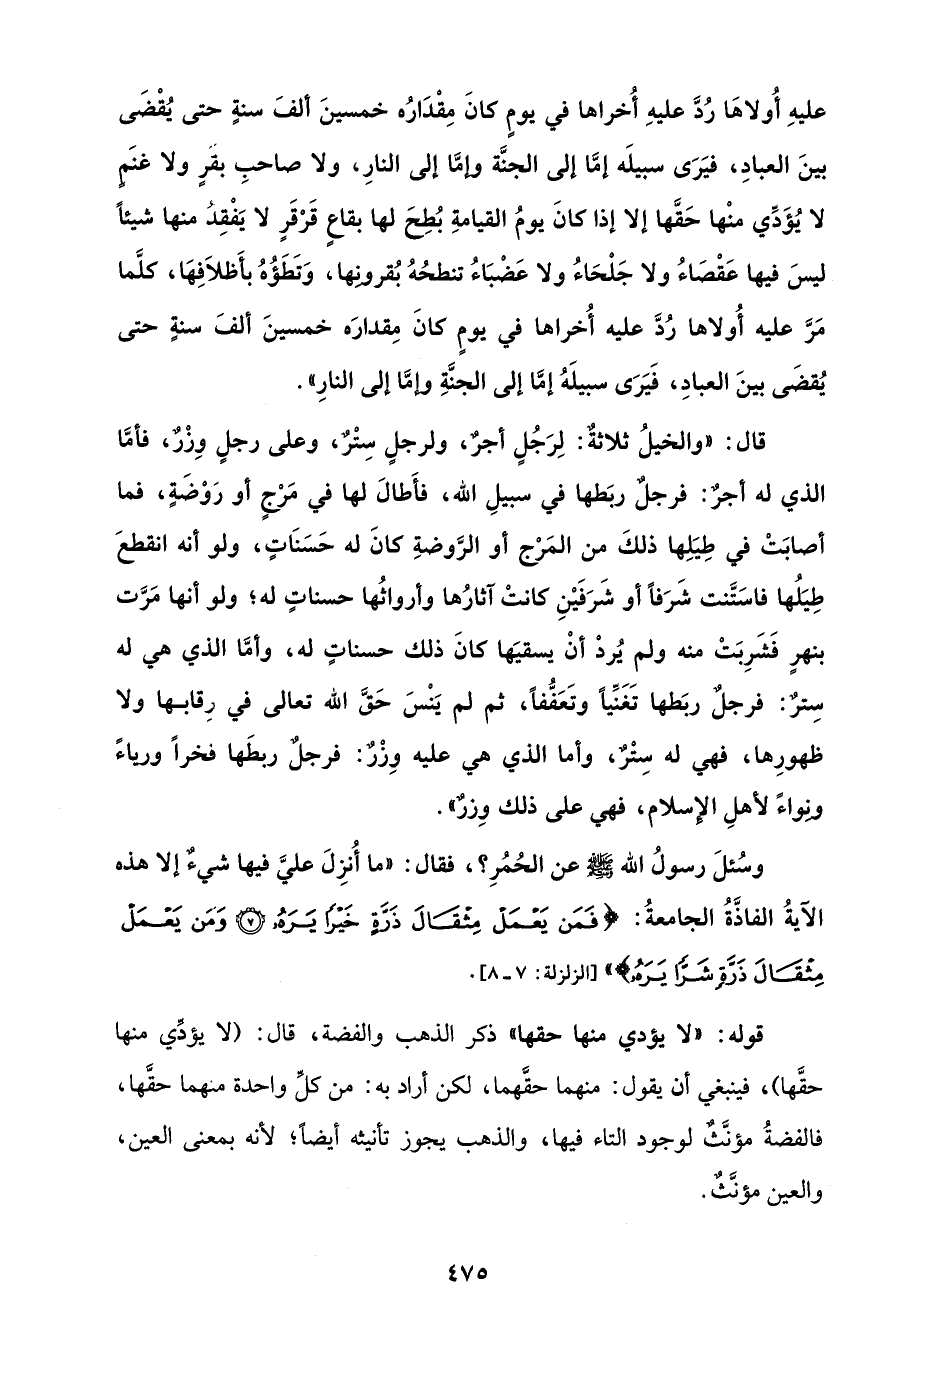 عليهِ أُولاهَا رُدَّ عليهِ أُخراها في يومٍ كانَ مِقْدَارُه خمسينَ ألفَ سنةٍ حتى يُقْضَى
بينَ العبادِ، فيَرَى سبيلَه إمَّا إلى الجنَّة وإمَّا إلى النارِ، ولا صاحبِ بقَرٍ ولا غنَمٍ
لا يُؤَدِّي منْها حَقَّها إلا إذا كانَ يومُ القيامةِ بُطِحَ لها بقاعٍ قَرْقَرٍ لا يَفْقِدُ منها شيئاً
ليسَ فيها عَقْصَاءُ ولا جَلْحَاءُ ولا عَضْبَاءُ تنطحُهُ بُقرونِها، وَتَطَؤُهُ بأَظلاَفِهَا، كلَّما
مَرَّ عليه أُولاها رُدَّ عليه أُخراها في يومٍ كانَ مِقدارَه خمسينَ ألفَ سنةٍ حتى
يُقضَى بينَ العبادِ، فَيَرَى سبيلَهُ إمَّا إلى الجنَّةِ وإمَّا إلى النارِ».
قال: «والخيلُ ثلاثةٌ: لِرَجُلٍ أجرٌ، ولرجلٍ سِتْرٌ، وعلى رجلٍ وِزْرٌ، فأمَّا
الذي له أجرٌ: فرجلٌ ربَطها في سبيلِ الله، فأَطالَ لها في مَرْجٍ أو رَوْضَةٍ، فما
أصابَتْ في طِيَلِها ذلكَ من المَرْج أو الرَّوضةِ كانَ له حَسَنَاتٍ، ولو أنه انقطعَ
طِيَلُها فاستَّنت شَرَفاً أو شَرَفَيْنِ كانتْ آثارُها وأرواثُها حسناتٍ له؛ ولو أنها مَرَّت
بنهرٍ فَشَرِبَتْ منه ولم يُردْ أنْ يسقيَها كانَ ذلك حسناتٍ له، وأمَّا الذي هي له
سِترٌ: فرجلٌ ربَطها تَغَنِّياً وتَعَفُّفاً، ثم لم يَنْسَ حَقَّ الله تعالى في رِقابـها ولا
ظهورِها، فهي له سِتْرٌ، وأما الذي هي عليه وِزْرٌ: فرجلٌ ربطَها فخراً ورياءً
ونِواءً لأهلِ الإسلام، فهي على ذلك وِزرٌ».
وسُئلَ رسولُ الله ﷺ عن الحُمُرِ؟، فقال: «ما أُنزِلَ عليَّ فيها شيءٌ إلا هذه
الآيةُ الفاذَّةُ الجامعةُ: ﴿فَمَن يَعْمَلْ مِثْقَالَ ذَرَّةٍ خَيْرًا يَرَهُۥ ⑦ وَمَن يَعْمَلْ
مِثْقَالَ ذَرَّةٍ شَرًّا يَرَهُۥ﴾» [الزلزلة: ٧ ـ ٨].
قوله: «لا يؤدي منها حقها» ذكر الذهب والفضة، قال: (لا يؤدِّي منها
حقَّها)، فينبغي أن يقول: منهما حقَّهما، لكن أراد به: من كلِّ واحدة منهما حقَّها،
فالفضةُ مؤنَّثٌ لوجود التاء فيها، والذهب يجوز تأنيثه أيضاً؛ لأنه بمعنى العين،
والعين مؤنَّثٌ.
٤٧٥